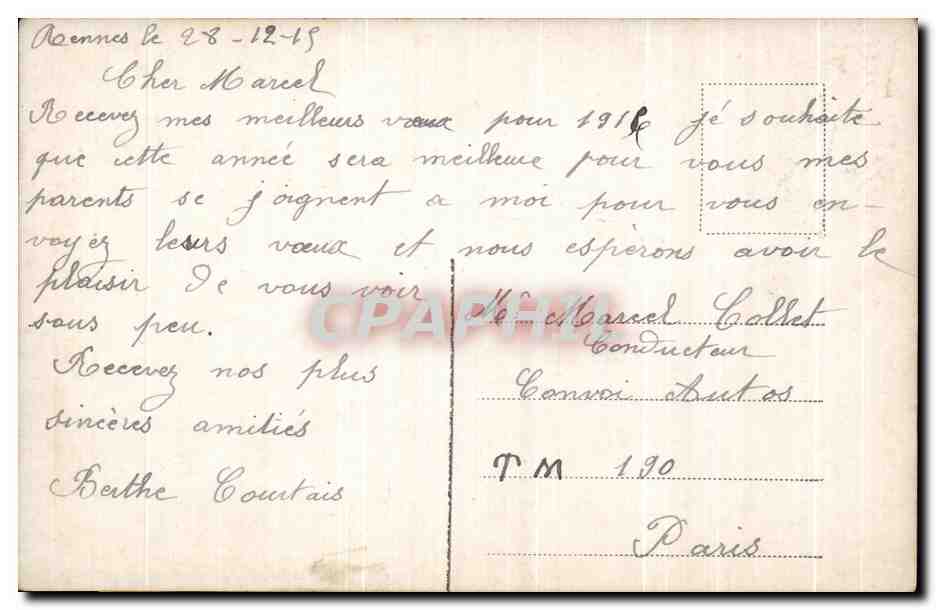 Rennes le 28-12-15
Cher Marcel
Recevez mes meilleurs vœux pour 1916 jé souhaite
que cette année sera meilleure pour vous mes
parents se joignent a moi pour vous en-
voyez leurs vœux et nous espèrons avoir le
plaisir de vous voir
sous peu.
Recevez nos plus
sincères amitiés
Berthe Courtais
Mr Marcel Collet
Conducteur
Convoi Autos
TM 190
Paris
CPAPHIL